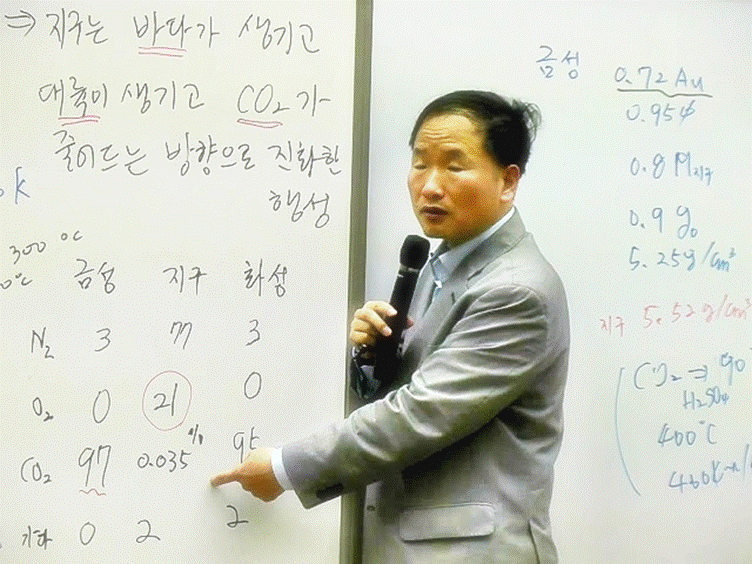 ⇒ 지구는 바다가 생기고
대륙이 생기고 CO₂가
줄어드는 방향으로 진화한
행성
300 ℃
0℃
금성 지구 화성
N₂ 3 77 3
O₂ 0 21 0
CO₂ 97 0.035% 95
기타 0 2 2
금성
0.72 Au
0.95
0.8 M지구
0.9 g₀
5.25g/cm³
지구 5.52g/cm³
CO₂ ⇒ 90
H₂SO₄
400℃